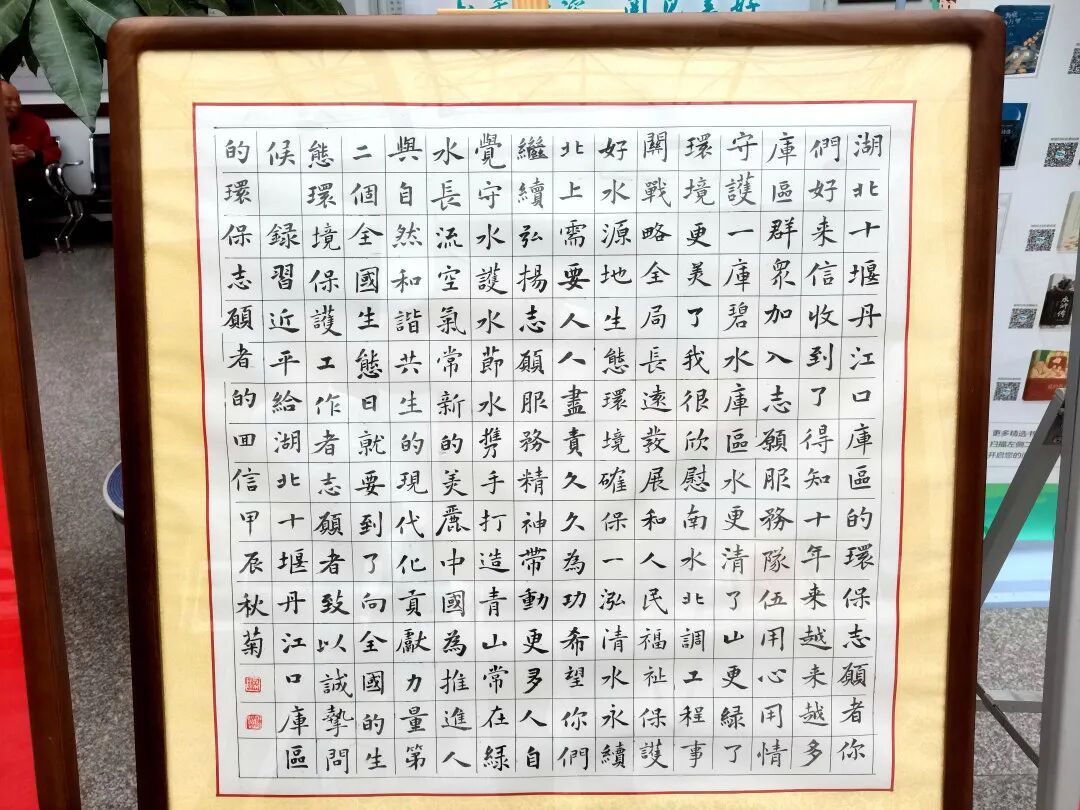 湖北十堰丹江口庫區的環保志願者你
們好来信收到了得知十年来越来越多
庫區群眾加入志願服務隊伍用心用情
守護一庫碧水庫區水更清了山更綠了
環境更美了我很欣慰南水北調工程事
關戰略全局長遠發展和人民福祉保護
好水源地生態環境確保一泓清水永續
北上需要人人盡責久久為功希望你們
繼續弘揚志願服務精神帶動更多人自
覺守水護水節水攜手打造青山常在綠
水長流空氣常新的美麗中國為推進人
與自然和諧共生的現代化貢獻力量第
二個全國生態日就要到了向全國的生
態環境保護工作者志願者致以誠摯問
候 録習近平給湖北十堰丹江口庫區
的環保志願者的回信甲辰秋菊
更多精选书
扫描左侧二
开启您的